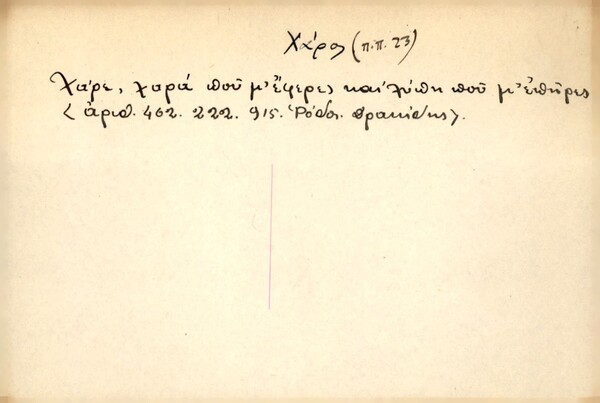 Χάρος (π.π. 23)
Χάρε, χαρά ποῦ μ' ἔφερες καὶ λύπη ποῦ μ' ἐπῆρες
< ἀριθ. 462. 222. 915. Ῥόδος. Θρακίδης>.